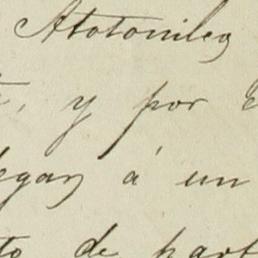 Atotonilco
, y por
egan á un
to de part